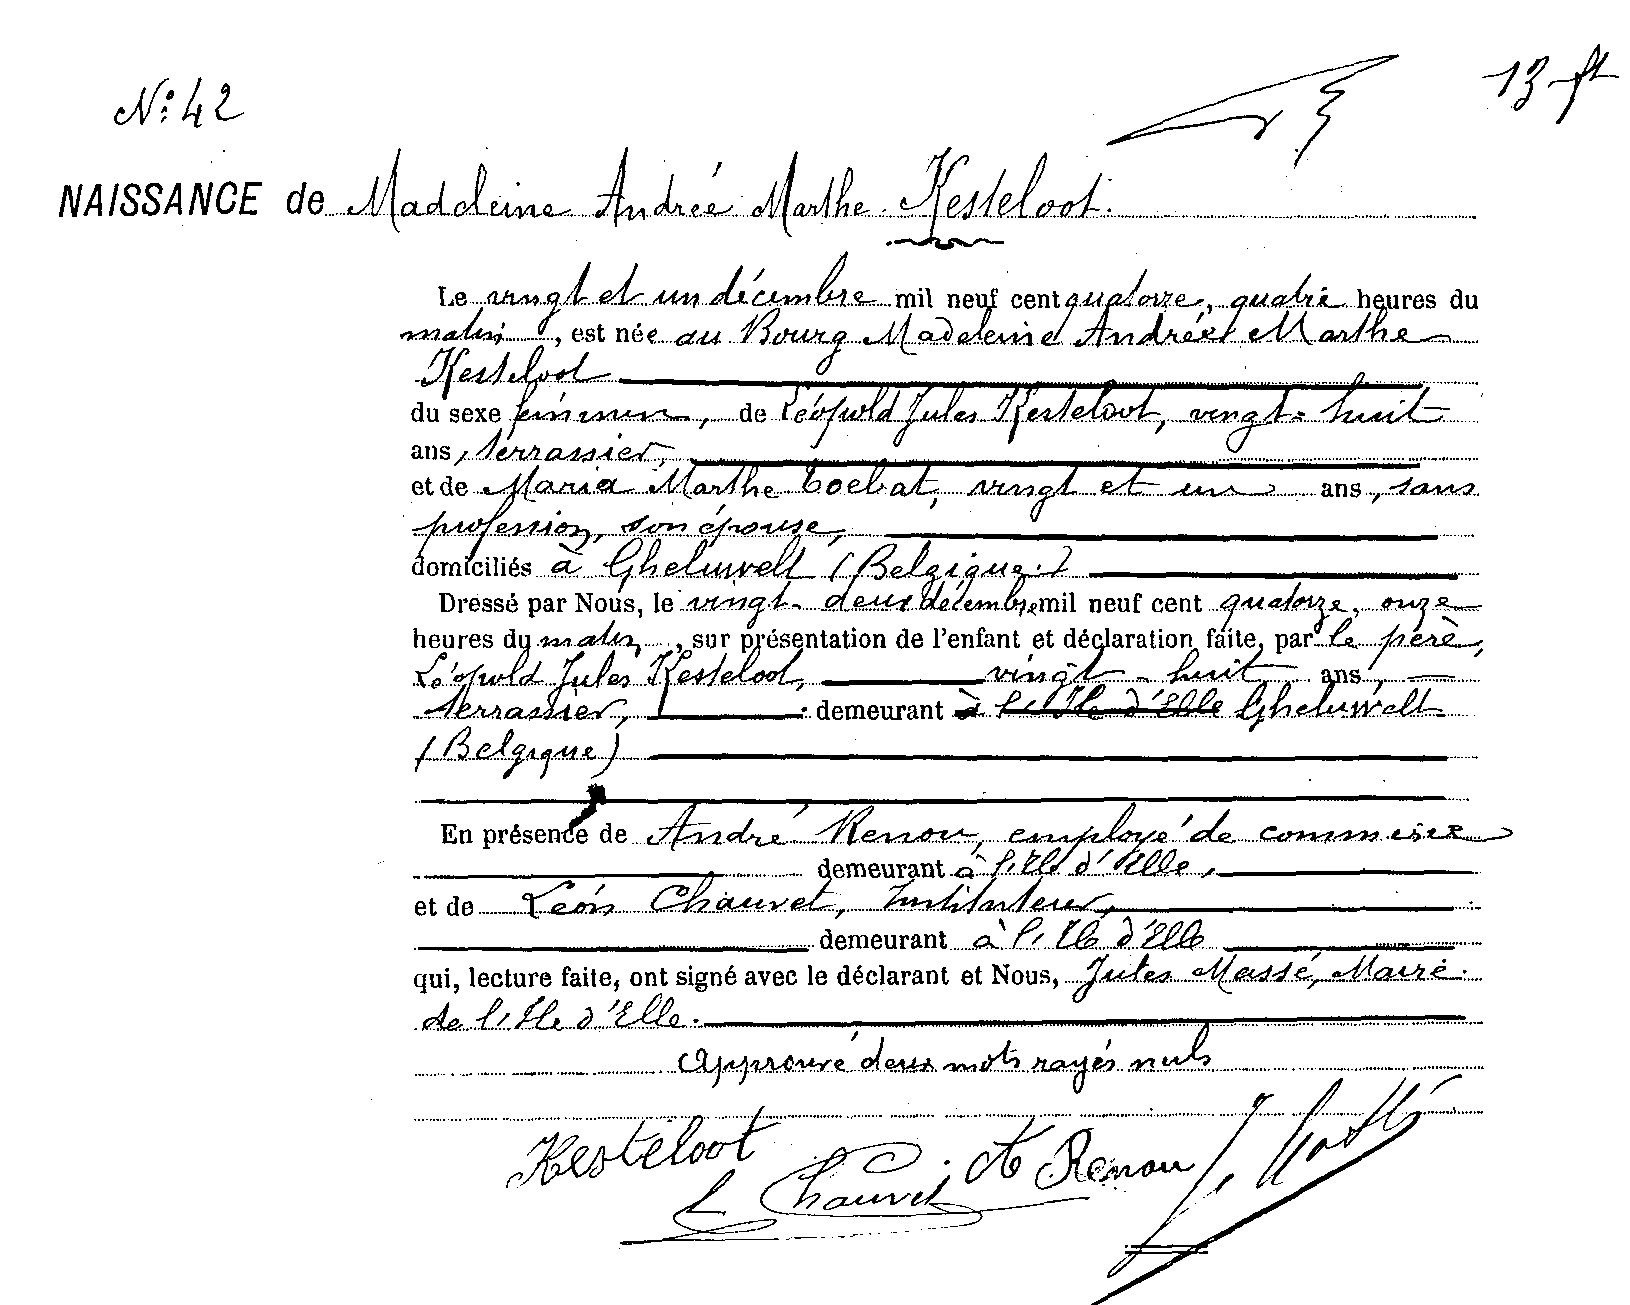 N° 42
13 ft
NAISSANCE de Madeleine André Marthe Kesteloot.
Le vingt et un décembre mil neuf cent quatorze, quatre heures du
matin, est née au Bourg Madeleine Andrée Marthe
Kesteloot
du sexe féminin, de Léopold Jules Kesteloot, vingt-huit
ans, terrassier,
et de Maria Marthe Coebat, vingt et un ans, sans
profession, son épouse,
domiciliés à Gheluwelt (Belgique.)
Dressé par Nous, le vingt-deux décembre mil neuf cent quatorze, onze
heures du matin, sur présentation de l'enfant et déclaration faite, par le père,
Léopold Jules Kesteloot, vingt-huit ans,
terrassier, demeurant à l'Ile d'Elle Gheluwelt
(Belgique)
En présence de André Renou, employé de commerce
demeurant à l'Ile d'Elle,
et de Léon Chauvet, Instituteur,
demeurant à l'Ile d'Elle
qui, lecture faite, ont signé avec le déclarant et Nous, Jules Massé, Maire
de l'Ile d'Elle.
Approuvé deux mots rayés nuls
Kesteloot
L Chauvet
A Renou
J. Massé